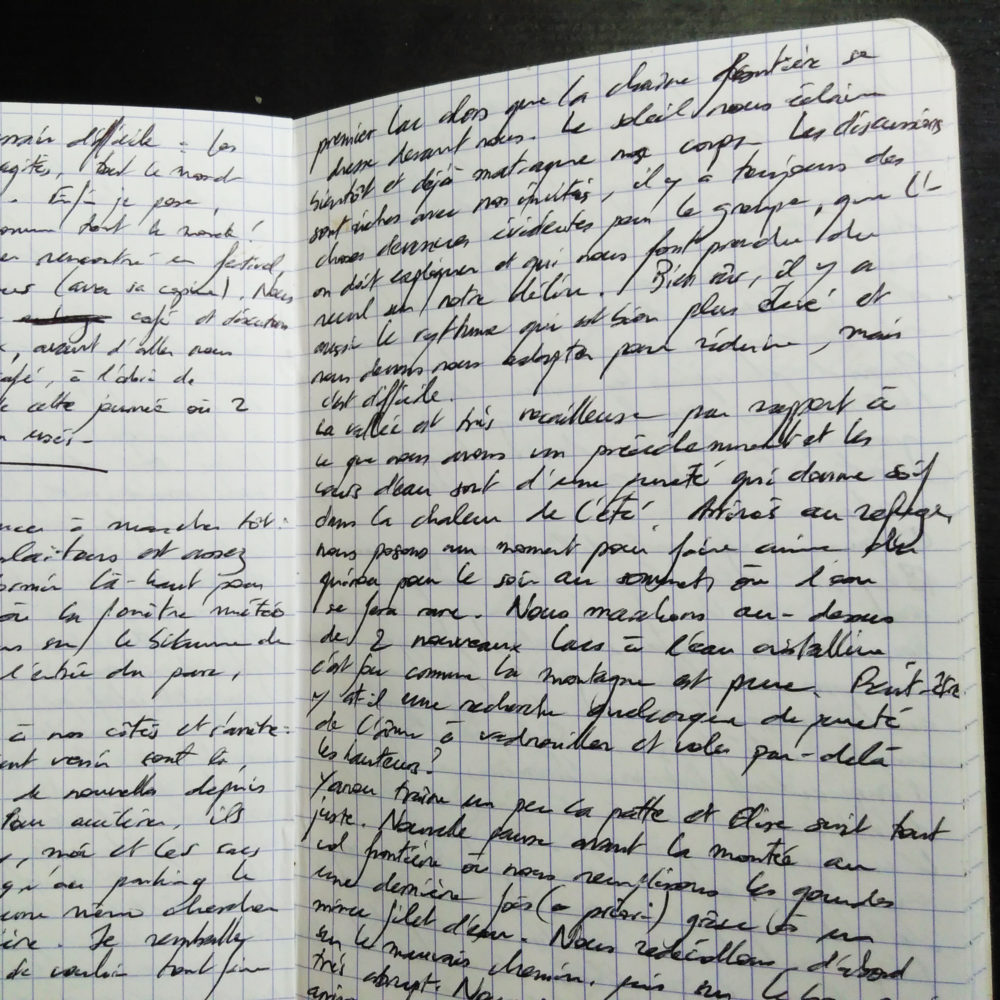 difficile. Les
agités, tout le monde
. Et je pose,
comme tout le monde!
rencontré en festival,
(avec sa copine). Nous
café et discutons
, avant d'aller nous
café, à l'abri de
cette journée où 2

à marcher tôt:
est assez
dormir là-haut pour
où la fenêtre météo
sur le bitume de
l'entrée du parc,
à nos côtés et s'arrête:
sont là,
de nouvelles depuis
ils
, moi et les sacs
qu'au parking le
chercher
. Je remballe
de vouloir tout faire
premier lac alors que la chaîne frontière se
dresse devant nous. Le soleil nous éclaire
bientôt et déjà mat-aque nos corps. Les discussions
sont riches avec nos invités, il y a toujours des
choses devenues évidentes pour le groupe, que l'-
on doit expliquer et qui nous font prendre du
recul sur notre délire. Bien sûr, il y a
aussi le rythme qui est bien plus élevé et
nous devons nous adapter pour réduire, mais
c'est difficile.
La vallée est très rocailleuse par rapport à
ce que nous avons vu précédemment et les
cours d'eau sont d'une pureté qui donne soif
dans la chaleur de l'été. Arrivés au refuge,
nous posons un moment pour faire cuire du
quinoa pour le soir au sommet, où l'eau
se fera rare. Nous marchons au-dessus
de 2 nouveaux lacs à l'eau cristalline
c'est fou comme la montagne est pure. Peut-être
y at-il une recherche quelconque de pureté
de l'âme à vadrouiller et voler par-delà
les hauteurs?
Yanou traîne un peu la patte et Elise suit tout
juste. Nouvelle pause avant la montée au
col frontière où nous remplissons les gourdes
une dernière fois (a priori) grâce à un
mince filet d'eau. Nous redécollons, d'abord
sur le mauvais chemin, puis sur le
très abrupt. Nous